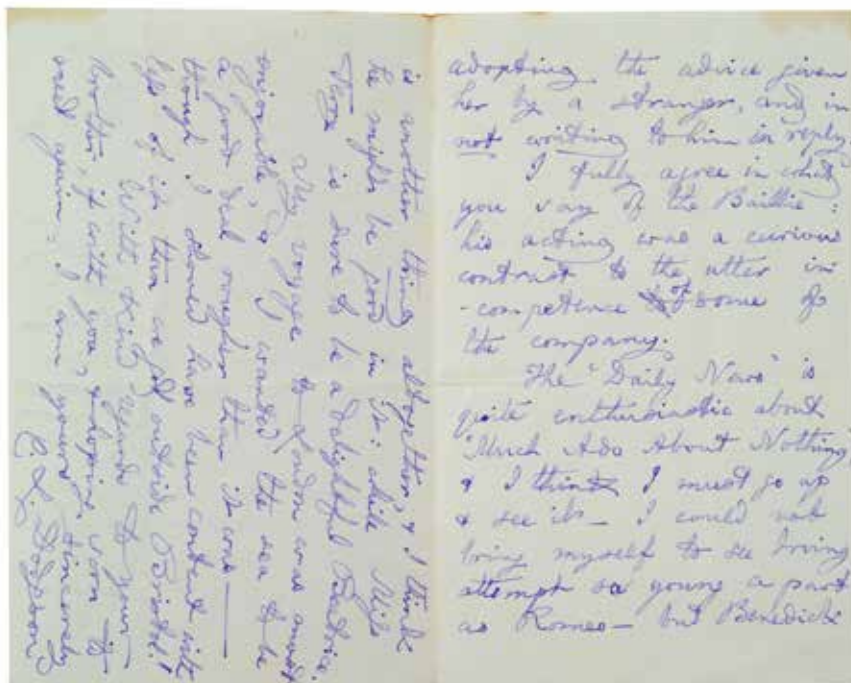 adopting the advice given
her by a stranger, and in
not writing to him in reply.
I fully agree in what
you say of the Baillie:
his acting was a curious
contrast to the utter in
-competence of some of
the company.
The "Daily News" is
quite enthusiastic about
"Much Ado About Nothing",
& I think I must go up
& see it — I could not
bring myself to see Irving
attempt so young a part
as Romeo — but Benedick
is another thing altogether, & I think
he might be good in it: while Miss
Terry is sure to be a delightful Beatrice.
My voyage to London was most
enjoyable, as I wanted the sea to be
a good deal rougher than it was —
though I should have been content with
less of it than we got outside Bristol!
With kind regards to your
brother, if with you, & hoping soon to
meet again, I am yours sincerely
C. L. Dodgson